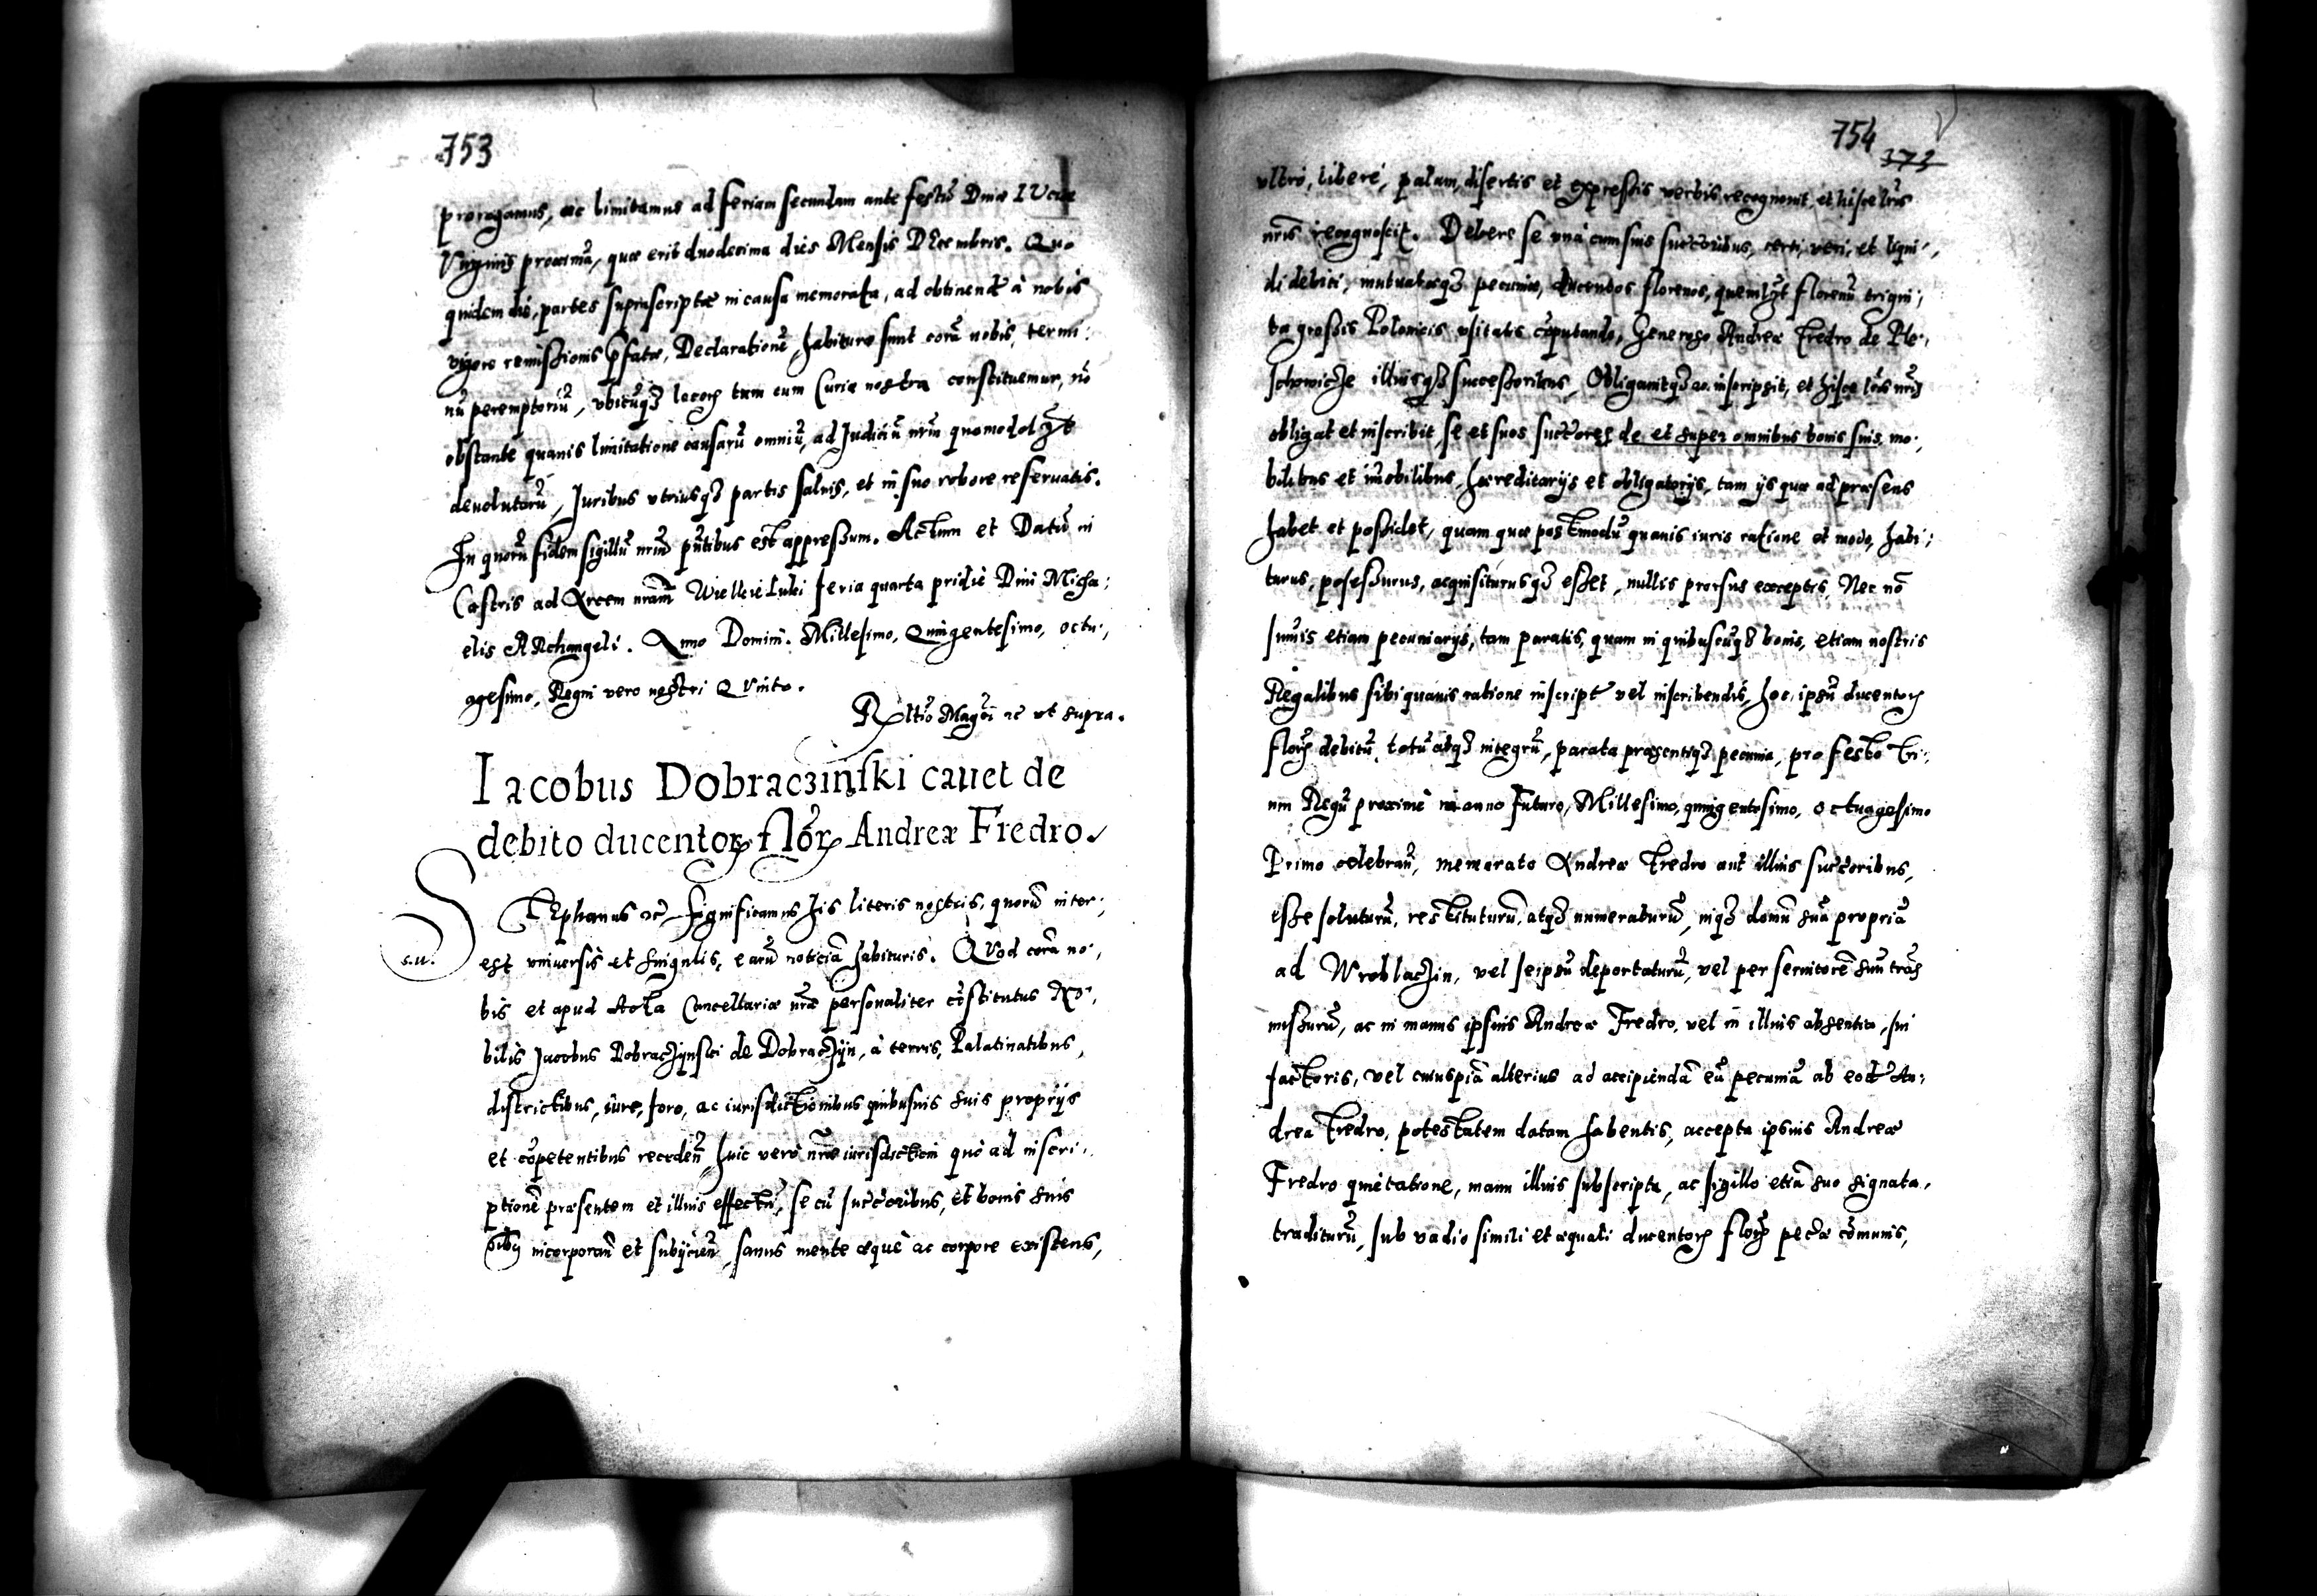 753
prorogamus, ac limitamus ad feriam secundam ante festũ Diuæ LUciæ
Virginis proximã, quæ erit duodecima dies Mensis DEcembris. Quo
quidem die, partes suprascriptæ in causa memorata, ad obtinend̃ à nobis
vigore remissionis p̃fatæ, Declarationẽ, habituræ sunt corã nobis, termi:
nũ peremptoriũ, vbicũq3 locorꝝ tum cum Curia nostra constituemur, nõ
obstante quauis limitatione causarũ omniũ, ad Judiciũ nrũm quomodolȝt
deuolutarũ, Juribus vtriusq3 partis saluis, et in suo robore reseruatis.
In quorũ fidem sigillũ nrũm pñtibus est appressum. Actum et Datũ in
Castris ad Arcem nrãm Wielkie Luki feria quarta pridiè Diui Micha:
elis ARchangeli. Anno Domini. Millesimo, Quingentesimo, octu:,
agesimo, Regni vero nostri QVinto.
Rltio Magci ꝛc̃ vt supra.
Iacobus Dobracʒinski cauet de
debito ducentorꝝ flõrꝝ Andreæ Fredro.
STEphanus ꝛc̃ Significamus his literis nostris, quorũ inter:,
s.u.
est vniuersis et singulis, earũ noticiã habituris. QVod corã no:,
bis et apud Acta Cancellariæ nrẽæ personaliter cõstitutus No:,
bilis Jacobus Dobracʒynski de Dobracʒyn, à terris, Palatinatibus,
districtibus, iure, foro, ac iurisdictionibus quibusuis suis proprijs
et cõpetentibus recedeñ, huic verò nrãe iurisdictioni quò ad inscri:,
ptionẽ præsentem et illius effectũ, se cũ succ̃oribus, et bonis suis
oĩbꝫ incorporañ et subijcieñ, sanus mente æquè ac corpore existens,
754
373
vltrò, liberè, palam, disertis et expressis verbis recognouit, et hisce lrĩs
nrĩs recognoscit. Debere se vnà cum suis succ̃oribus, certi, veri, et liqui:,
di debiti, mutuatæq3 pecuniæ, ducentos florenos, quemlȝt florenũ trigin:,
ta grossis Polonicis vsitatis cõputando, Generoso Andreæ Fredro de Ple:,
schowicʒe illiusq3 successoribus, Obligauitq3 ac inscripsit, et hisce lrĩs nrĩs
obligat et inscribit, se et suos succ̃ores de et super omnibus bonis suis, mo:,
bilibus et imobilibus, hæreditarijs et obligatorijs, tam ijs quæ ad præsens
habet et possidet, quam quæ postmodũ quauis iuris ratione et modo, habi:,
turus, possessurus, acquisiturusq3 esset, nullis prorsus exceptis, Nec nõ
summis etiam pecuniarijs, tam paratis, quam in quibuscũq3 bonis, etiam nostris
Regalibus sibi quauis ratione inscript̃ vel inscribendis, hoc ipsũ ducentorꝝ
florꝝ debitũ, totũ atq3 integrũ, parata præsentiq3 pecunia, pro festo tri:,
um Regũ proximè in anno futuro, Millesimo, quingentesimo, octuagesimo
Primo celebrañ, memorato Andreæ Fredro aut illius succ̃oribus,
esse soluturũ, restituturũ, atq3 numeraturũ, inq3 domũ suã propriã
ad Wroblacʒin, vel seipsũ deportaturũ, vel per seruitorẽ suũ trãs
missurũ, ac in manus ipsius Andreæ Fredro, vel in illius absentia, sui
factoris, vel cuiuspiã alterius ad accipiendã eã pecuniã ab eod̃ An:,
drea Fredro, potestatem datam habentis, accepta ipsius Andreæ
Fredro quietatione, manu illius subscripta, ac sigillo etiã suo signata,
traditurũ, sub vadio simili et æquali ducentorꝝ florꝝ pec̃æ cõmunis,